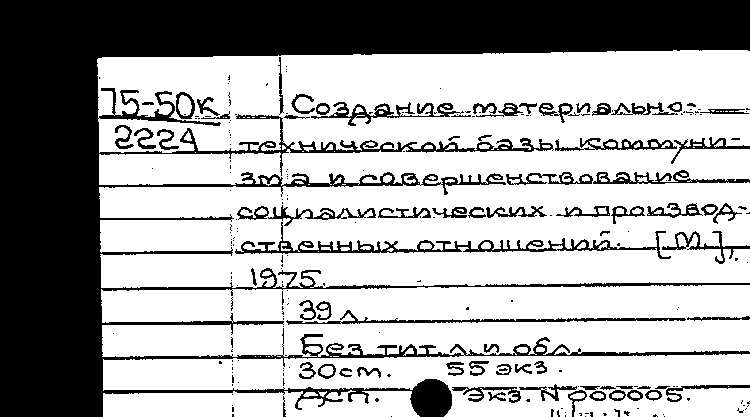 75-50к
2224
Создание материально-
технической базы коммуни-
зма и совершенствование
социалистических и производ-
ственных отношений. [М.],
1975.
39 л.
Без тит. л. и обл.
30cm. 55 экз.
ДСП. Экз. N 000005.